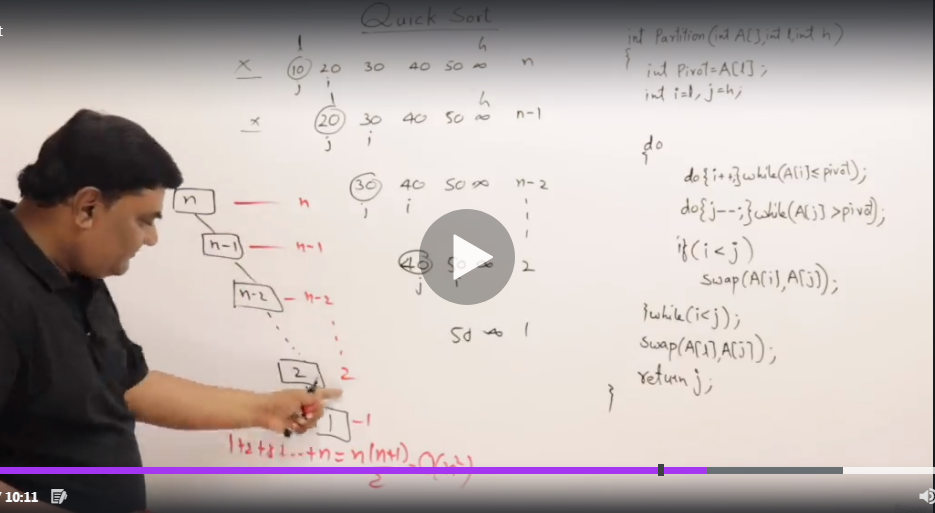 t
Quick Sort
l h
× 10 20 30 40 50 ∞ n
j i
l h
× 20 30 40 50 ∞ n-1
j i
30 40 50 ∞ n-2
j i
40 50 ∞ 2
j i
50 ∞ 1
n — n
n-1 — n-1
n-2 — n-2
2 2
1 -1
1+2+3+...+n = n(n+1)
2
int Partition(int A[],int l,int h)
{
int Pivot=A[l];
int i=l, j=h;
do
{
do{i++;}while(A[i]≤pivot);
do{j--;}while(A[j]>pivot);
if(i<j)
swap(A[i],A[j]);
}while(i<j);
swap(A[l],A[j]);
return j;
}
/ 10:11